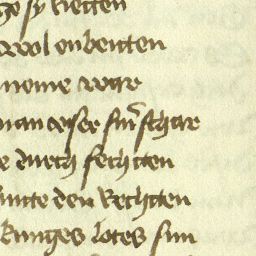 sy hetten
wol enbenten
nome ware
man diser sin schar
e durch fechten
unte den rechten
kunges lotes sun